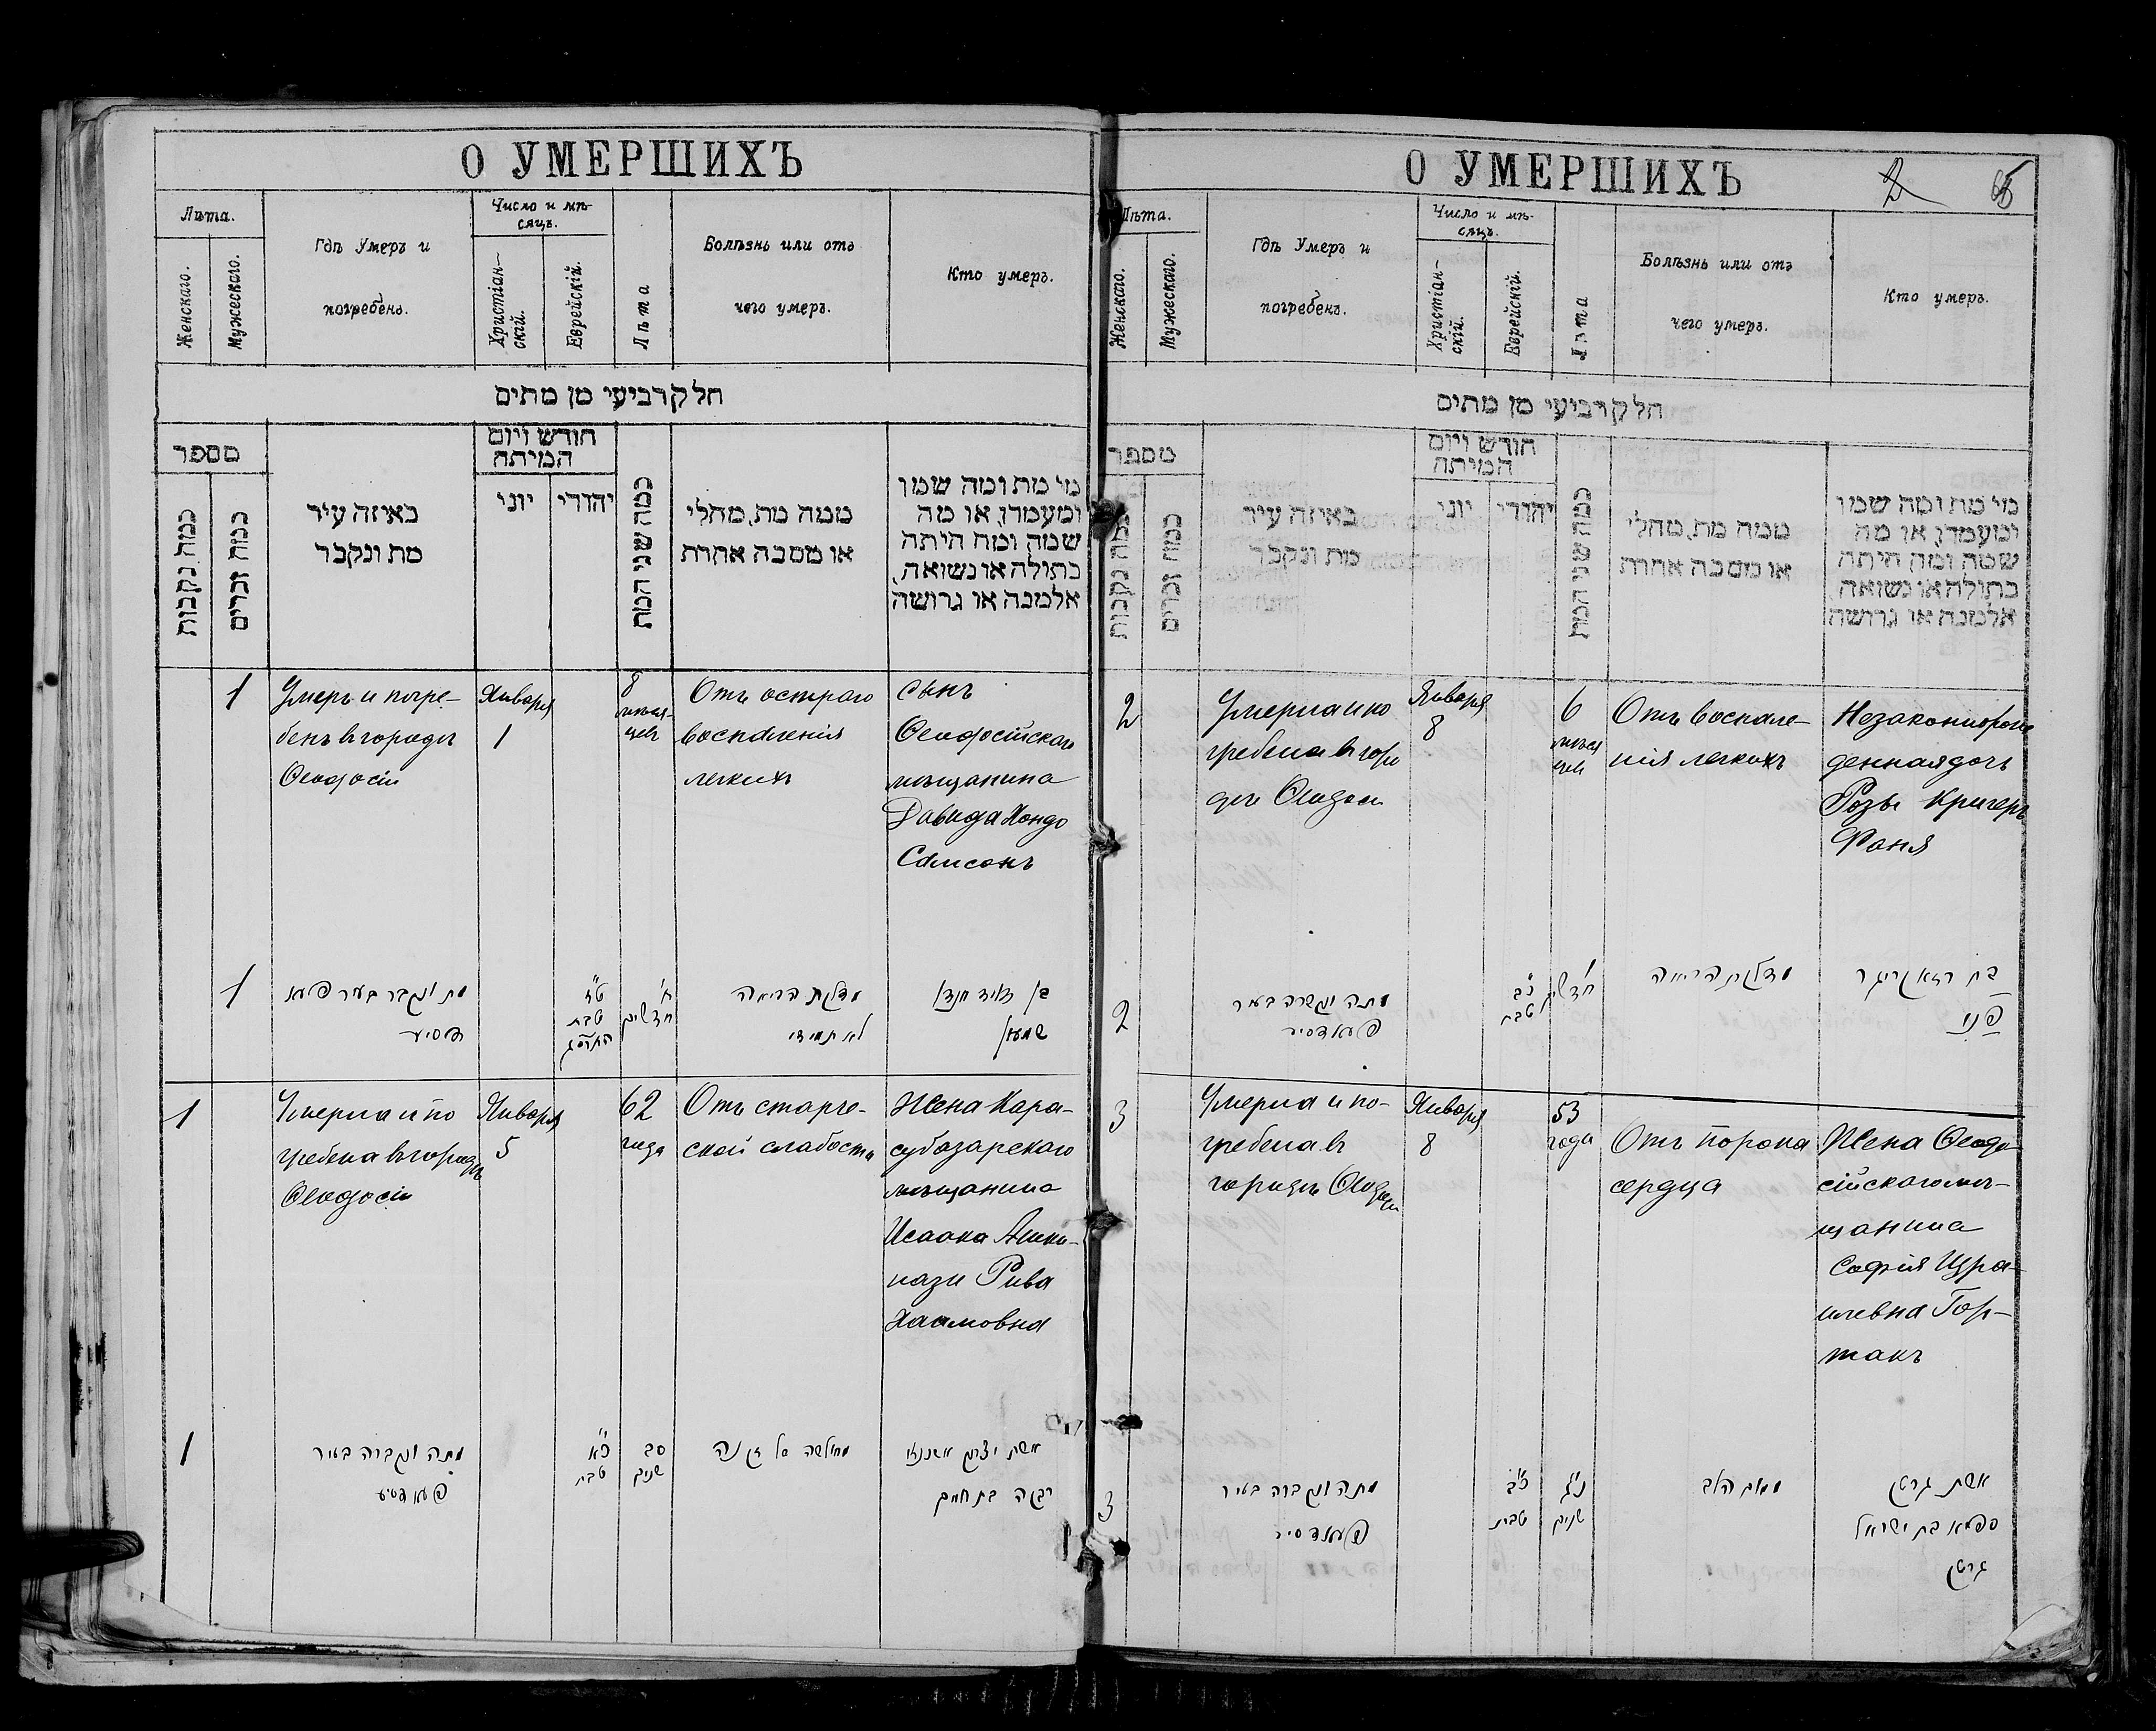 О УМЕРШИХЪ
Лѣта.
Женскаго.
Мужескаго.
Гдѣ Умеръ и
погребенъ.
Число и мѣ-
сяцъ.
Христіан-
скій.
Еврейскій.
Лѣта
Болѣзнь или отъ
чего умеръ.
Кто умеръ.
חלק רביעי מן מתים
מספר
כמה נקבות
כמה זכרים
באיזה עיר
מת ונקבר
חודש ויום
המיתה
יוני
יהודי
כמה שני המת
ממה מת, מחלי
או מסבה אחרת
מי מת ומה שמו
ומעמדו, או מה
שמה ומה היתה
בתולה או נשואה,
אלמנה או גרושה
1
Умеръ и погре-
бенъ въ городѣ
Ѳеодосіи
Января
1
8
мѣся-
цевъ
Отъ остраго
воспаленія
легкихъ
сынъ
Ѳеодосійскаго
мѣщанина
Давида Хондо
Самсонъ
1
מת ונקבר בעיר פעא
דסיע
ט"ז
טבת
ח'
חדשים
מדלקת הריאה
לא תמידי
בן דוד חנדו
שמשון
1
Умерла и по
гребена въ городѣ
Ѳеодосіи
Января
5
62
года
Отъ старче-
ской слабости
Жена Кара-
субазарскаго
мѣщанина
Исаака Ашке-
нази Рива
Хаимовна
1
מתה ונקברה בעיר
פעאדסיע
כ"א
טבת
סב
שנים
מחולשה של זקנה
אשת יצחק אשכנזי
רבקה בת חיים
О УМЕРШИХЪ
2
Лѣта.
Женскаго.
Мужескаго.
Гдѣ Умеръ и
погребенъ.
Число и мѣ-
сяцъ.
Христіан-
скій.
Еврейскій.
Лѣта
Болѣзнь или отъ
чего умеръ.
Кто умеръ.
חלק רביעי מן מתים
מספר
כמה נקבות
כמה זכרים
באיזה עיר
מת ונקבר
חודש ויום
המיתה
יוני
יהודי
כמה שני המת
ממה מת, מחלי
או מסבה אחרת
מי מת ומה שמו
ומעמדו, או מה
שמה ומה היתה
בתולה או נשואה,
אלמנה או גרושה
2
Умерла и по
гребена въ горо
дѣ Ѳеодосіи
Января
8
6
мѣся
цевъ
Отъ воспале-
нія легкихъ
Незаконнорож
денная дочь
Розы Кригеръ
Фаня
2
מתה ונקברה בעיר
פעאדסיע
כ"ב
טבת
ו'
חדשים
מדלקת הריאה
בת רוזא קריגר
פני
3
Умерла и по-
гребена въ
городѣ Ѳеодосіи
Января
8
53
года
Отъ порока
сердца
Жена Ѳеодо-
сійскаго мѣ-
щанина
Софія Изра-
илевна Гор-
такъ
3
מתה ונקברה בעיר
פעאדסיע
כ"ב
טבת
נ"ג
שנים
הלב
אשת
ספיא בת ישראל